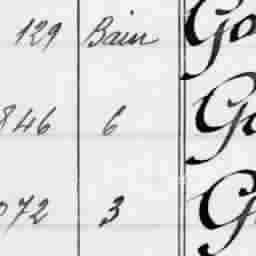 129 Bain Go
846 6 Go
072 3 G